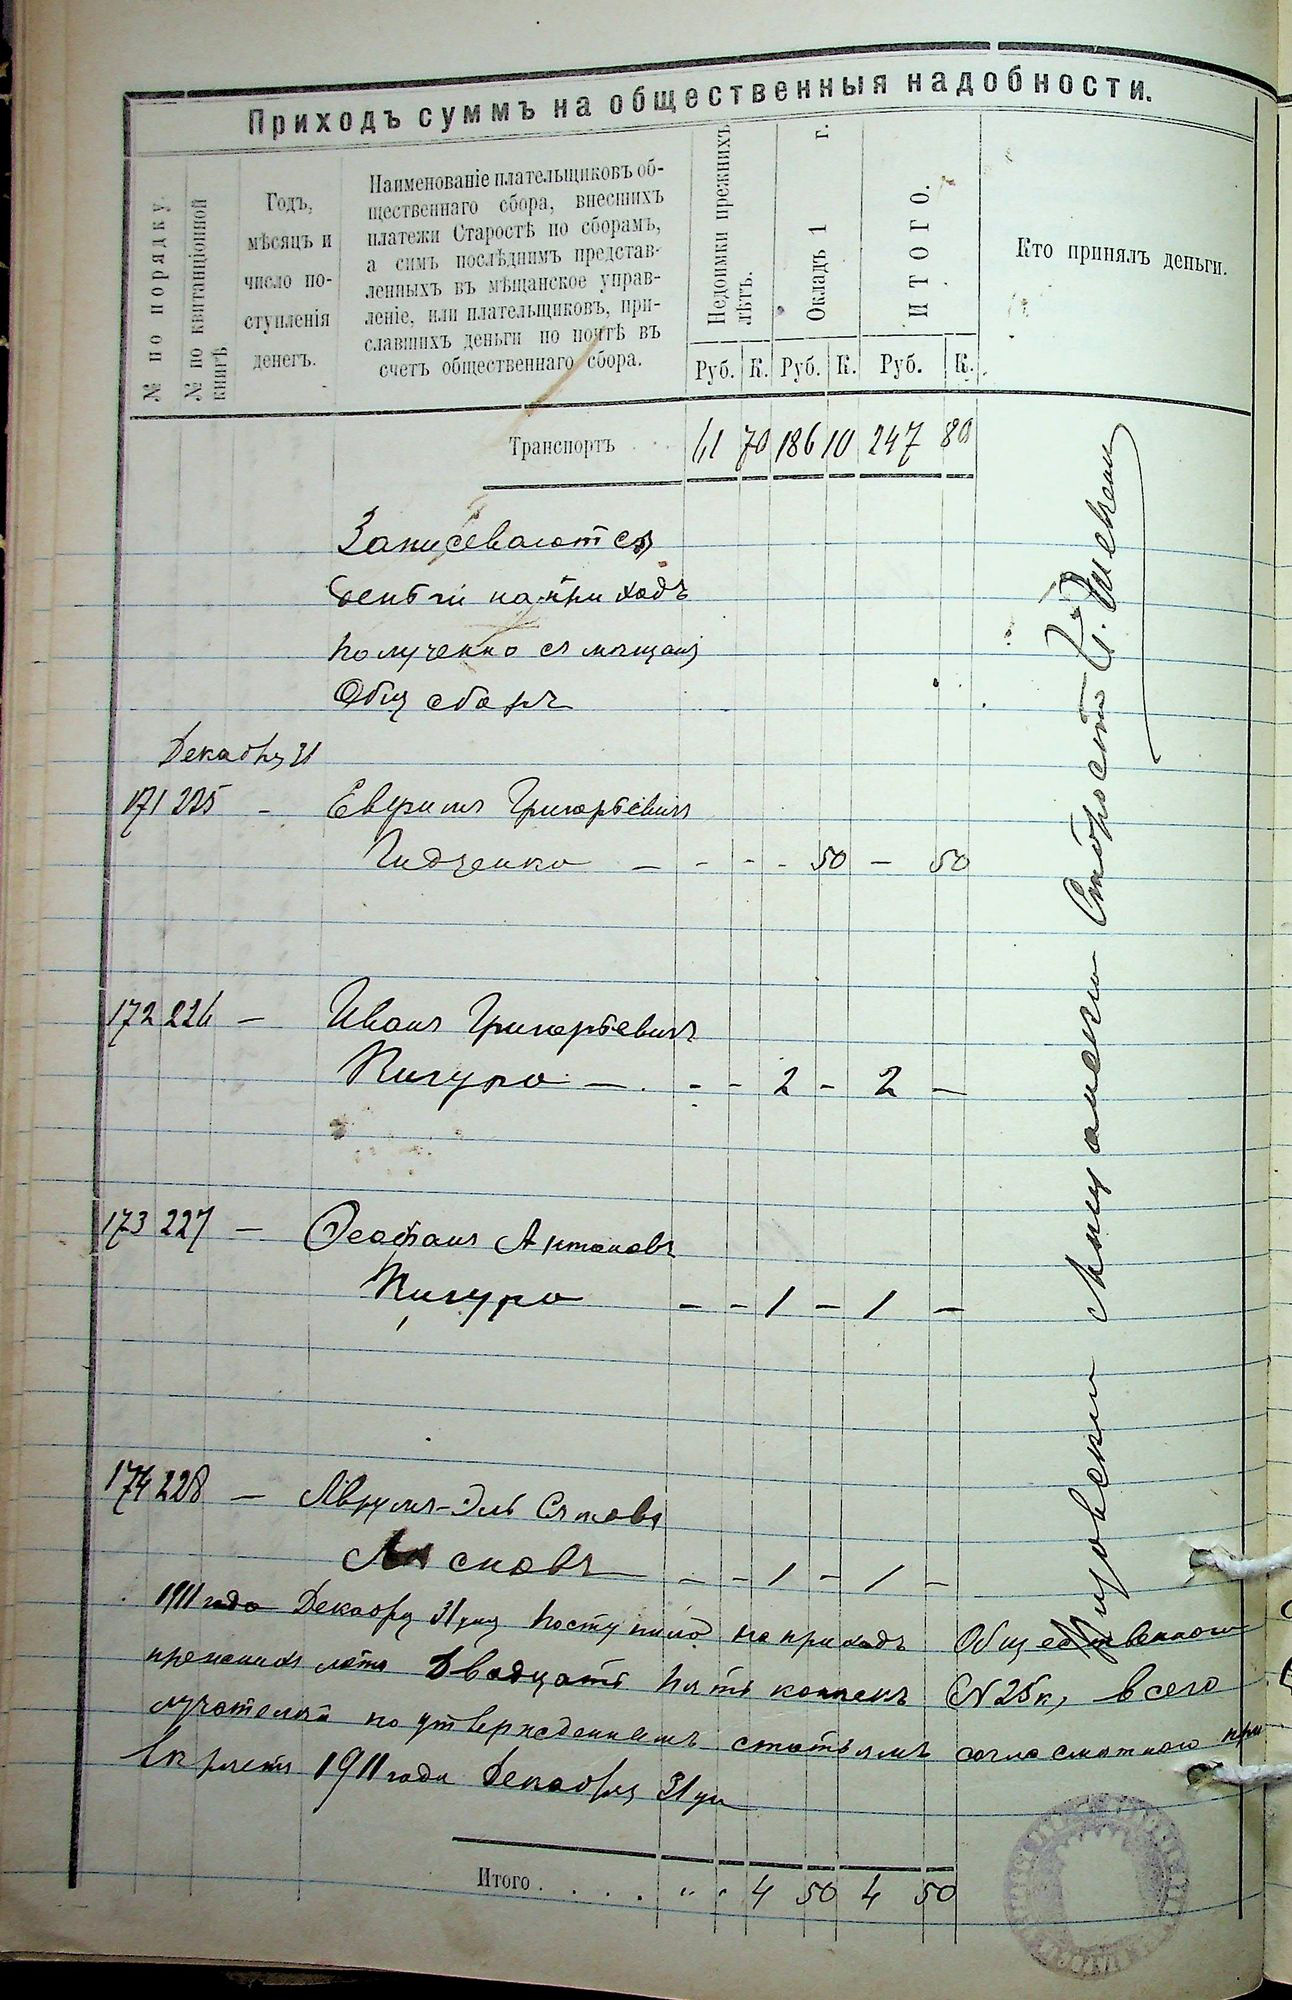 Приходъ суммъ на общественныя надобности.
№ по порядку.
№ по квитанціонной книгѣ
Годъ,
мѣсяцъ и
число по-
ступленія
денегъ.
Наименованіе плательщиковъ об-
щественнаго сбора, внесшихъ
платежи Старостѣ по сборамъ,
а симъ послѣднимъ представ-
ленныхъ въ мѣщанское управ-
леніе, или плательщиковъ, при-
славшихъ деньги по почтѣ въ
счетъ общественнаго сбора.
Недоимки прежнихъ лѣтъ.
Окладъ 1 г.
ИТОГО.
Кто принялъ деньги.
Руб. К. Руб. К. Руб. К.
Транспортъ 61 70 186 10 247 80
Записеваются
деньги на приходъ
получено съ мещанъ
Общ сборъ
Декабря 31
171 225 - Евфимъ Григорьевичъ
- - - 50 - 50
172 226 - Иванъ Григорьевичъ
Кигуро - - - 2 - 2 -
173 227 - Феофанъ Антоновъ
Кигуро - - 1 - 1 -
174 228 - Аврумъ-Эль
сновъ - - 1 - 1 -
1911 года Декабря 31 дня поступило на приходъ Общественного
прежнихъ летъ Двадцать пять копеекъ 25к, всего
по утвержденнымъ статьямъ
1911 года Декабря 31 дн
Итого . . . . " " 4 50 4 50
Мещански Старость